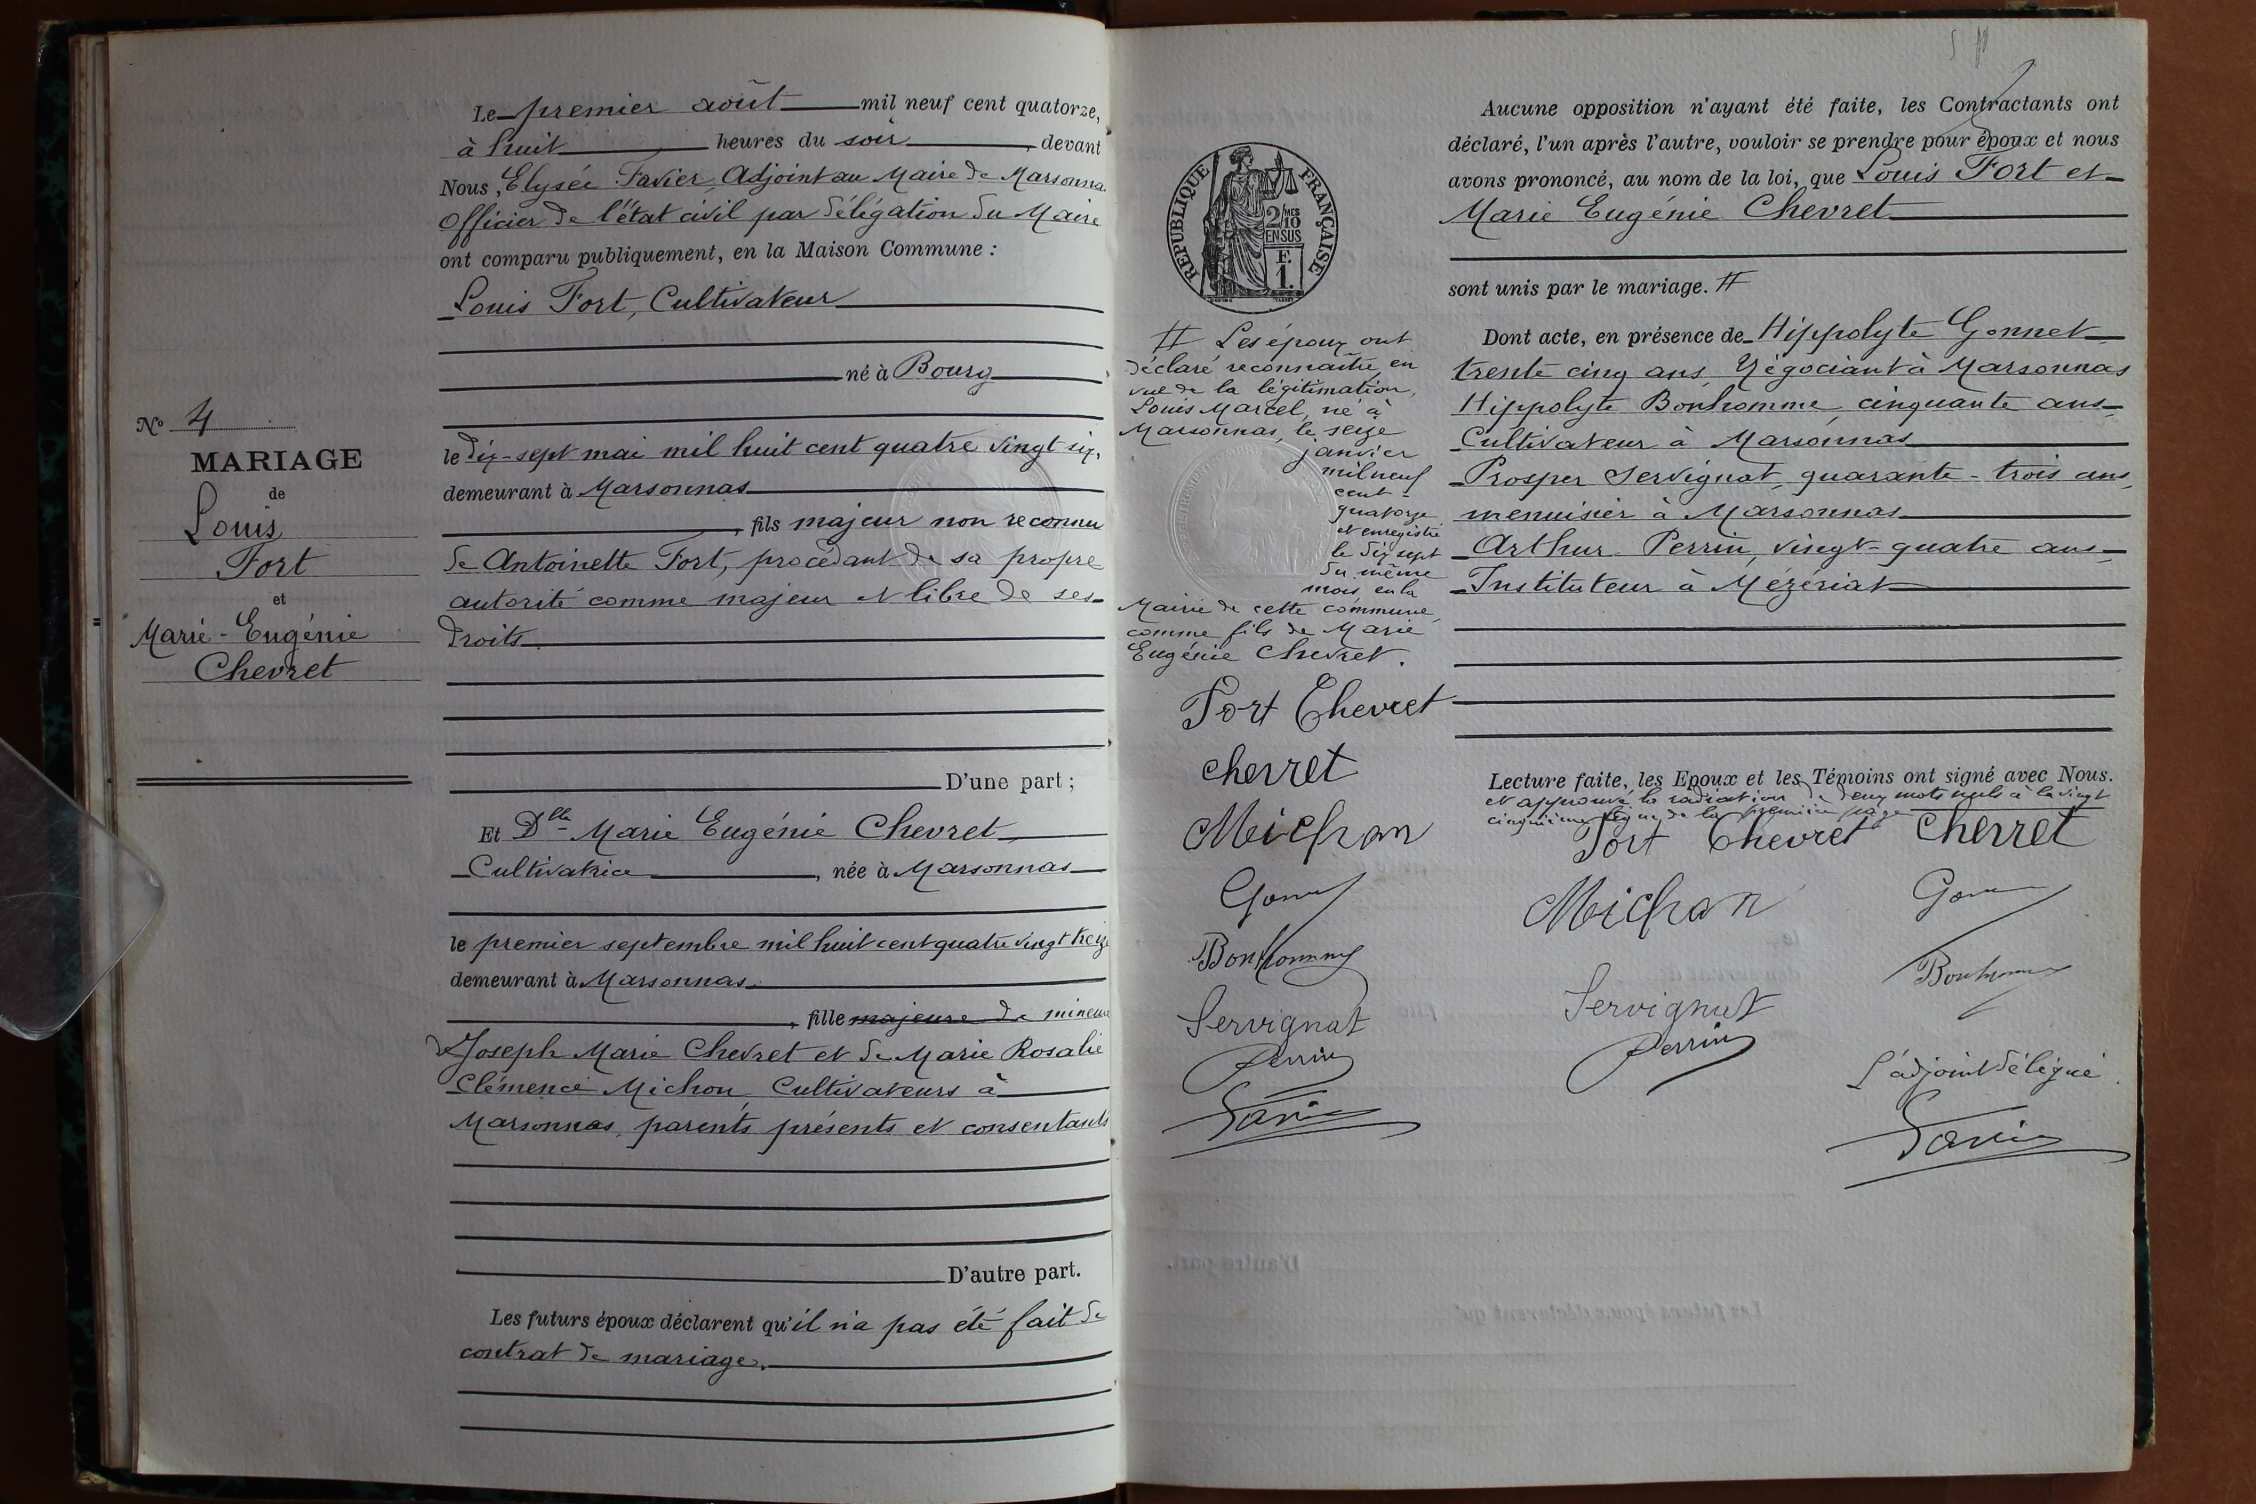 Le premier août mil neuf cent quatorze,
à huit heures du soir, devant
Nous, Elysée Favier, Adjoint au Maire de Marsonna
Officier de l'état civil par délégation du Maire
ont comparu publiquement, en la Maison Commune :
Louis Fort, Cultivateur
né à Bourg
le dix-sept mai mil huit cent quatre vingt six,
demeurant à Marsonnas
, fils majeur non reconnu
de Antoinette Fort, procédant de sa propre
autorité comme majeur et libre de ses
droits.
D'une part ;
Et Dlle Marie Eugénie Chevret
Cultivatrice, née à Marsonnas
le premier septembre mil huit cent quatre vingt treize
demeurant à Marsonnas.
, fille majeure de mineure
de Joseph Marie Chevret et de Marie Rosalie
Clémence Michon, Cultivateurs à
Marsonnas, parents présents et consentants
D'autre part.
Les futurs époux déclarent qu'il n'a pas été fait de
contrat de mariage.
No 4
MARIAGE
de
Louis
Fort
et
Marie-Eugénie
Chevret
RÉPUBLIQUE FRANÇAISE
2/10 MES
EN SUS
F.
1.
# Les époux ont
déclaré reconnaître, en
vue de la légitimation,
Louis Marcel, né à
Marsonnas, le seize
janvier
mil neuf
cent
quatorze
et enregistré
le dix sept
du même
mois, en la
Mairie de cette commune,
comme fils de Marie
Eugénie Chevret.
Fort Chevret
chevret
Michon
Gonnet
Bonhomme
Servignat
Perrin
Favier
Aucune opposition n'ayant été faite, les Contractants ont
déclaré, l'un après l'autre, vouloir se prendre pour époux et nous
avons prononcé, au nom de la loi, que Louis Fort et
Marie Eugénie Chevret
sont unis par le mariage. #
Dont acte, en présence de Hippolyte Gonnet
trente cinq ans, Négociant à Marsonnas
Hippolyte Bonhomme, cinquante ans,
Cultivateur à Marsonnas
Prosper Servignat, quarante-trois ans,
menuisier à Marsonnas
Arthur Perrin, vingt-quatre ans,
Instituteur à Mézériat
Lecture faite, les Epoux et les Témoins ont signé avec Nous.
et approuvé la radiation de deux mots nuls à la vingt
cinquième ligne de la première page
Fort Chevret Chevret
Michon Gonnet
Bonhomme
Servignat
Perrin
L'adjoint délégué.
Favier